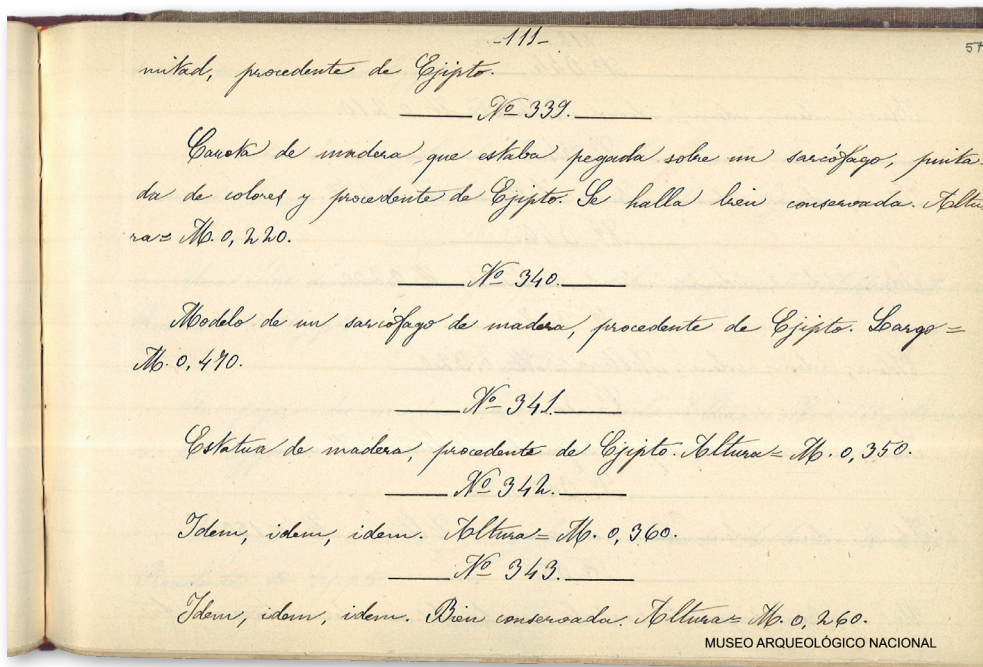 -111-
57
mitad, procedente de Ejipto.
Nº 339.
Careta de madera que estaba pegada sobre un sarcófago, pinta-
da de colores y procedente de Ejipto. Se halla bien conservada. Altu-
ra= M. 0,220.
Nº 340.
Modelo de un sarcófago de madera, procedente de Ejipto. Largo=
M. 0,470.
Nº 341.
Estatua de madera, procedente de Ejipto. Altura= M. 0,350.
Nº 342.
Idem, idem, idem. Altura= M. 0,360.
Nº 343.
Idem, idem, idem. Bien conservada. Altura= M. 0,260.
MUSEO ARQUEOLÓGICO NACIONAL